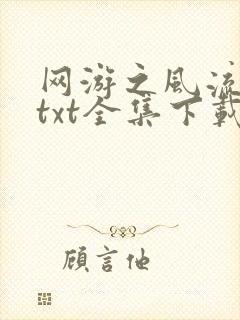 网游之风流
txt全集下载
顾言他